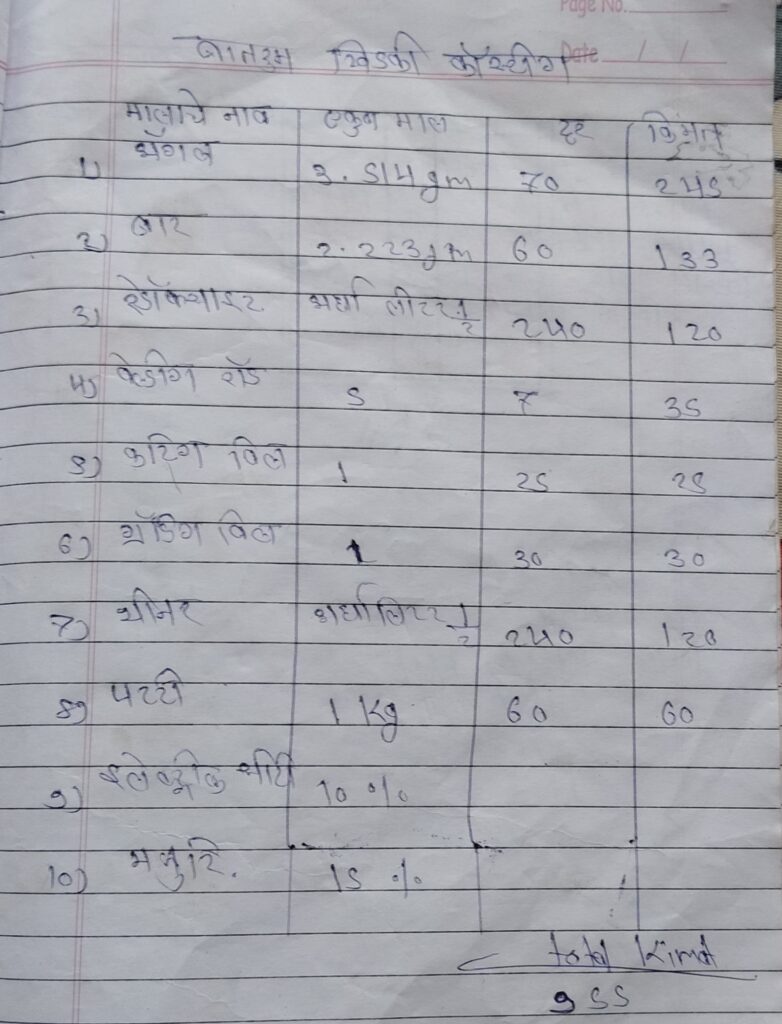 Page No.
Date / /
बातरुम खिडकी कॉस्टींग
मालाचे नाव एकुण माल दर किंमत
1) अँगल 3.514gm 70 245
2) बार 2.223gm 60 133
3) रेडॉक्साइट अर्धा लीटर 1/2 240 120
4) वेल्डींग रॉड 5 7 35
5) कटिंग विल 1 25 25
6) ग्रॅडिंग विल 1 30 30
7) थीनर अर्धा लिटर 1/2 240 120
8) पट्टी 1 Kg 60 60
9) इलेक्ट्रीक 10 %
10) मजुरि. 15 %
total kimat
955